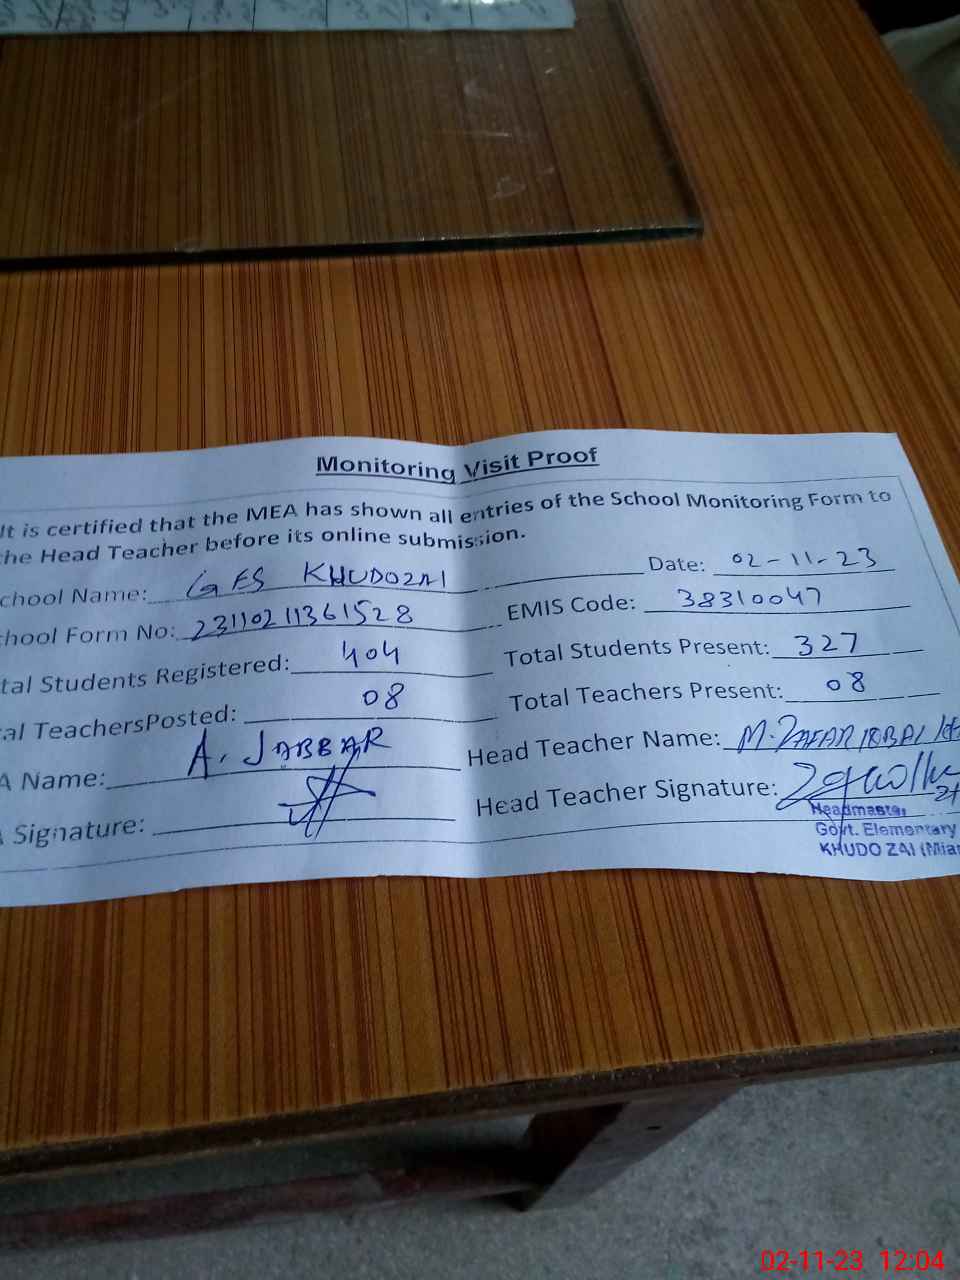 Monitoring Visit Proof
It is certified that the MEA has shown all entries of the School Monitoring Form to
the Head Teacher before its online submission.
chool Name: GES KHUDOZAI Date: 02-11-23
chool Form No: 2311021361528 EMIS Code: 38310047
tal Students Registered: 404 Total Students Present: 327
al TeachersPosted: 08 Total Teachers Present: 08
A Name: A. JABBAR Head Teacher Name: M. ZAFAR IQBAL
Signature: Head Teacher Signature:
Headmaster
Govt. Elementary
KHUDO ZAI (Mian
02-11-23 12:04